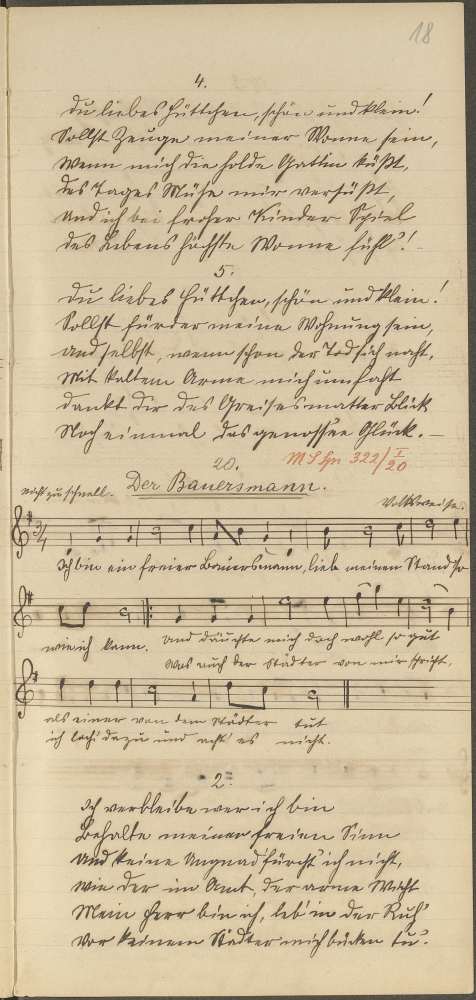 18
4.
Du liebes Hüttchen, schön und klein!
Sollst Zeuge meiner Wonne sein,
Wenn mich die holde Gattin küßt,
Des Tages Mühe mir versüßt,
Und ich bei froher Kinder Spiel
Des Lebens höchste Wonne fühl'! -
5.
Du liebes Hüttchen, schön und klein!
Sollst fürder meine Wohnung sein,
Und selbst, wenn schon der Tod sich naht,
Mit kaltem Arme mich umfaht
Dankt Dir des Greises matter Blick
Noch einmal das genoss'ne Glück. -
20. M S Hn 322/I 20
nicht zu schnell. Der Bauersmann. Volksweise.
3/4
Ich bin ein freier Bauersmann, lieb meinen Stand so
wie ich kann. Und däuchte mich doch wohl so gut
Was auch der Städter von mir spricht,
als einer von dem Städter tut
ich lach' dazu und acht' es nicht.
2.
Ich verbleibe wer ich bin
Behalte meinen freien Sinn
Und keine Ungnad' fürcht' ich nicht,
Wie der im Amt, der arme Wicht
Mein Herr bin ich, leb' in der Ruh'
Vor keinem Städter mich bücken tu'.